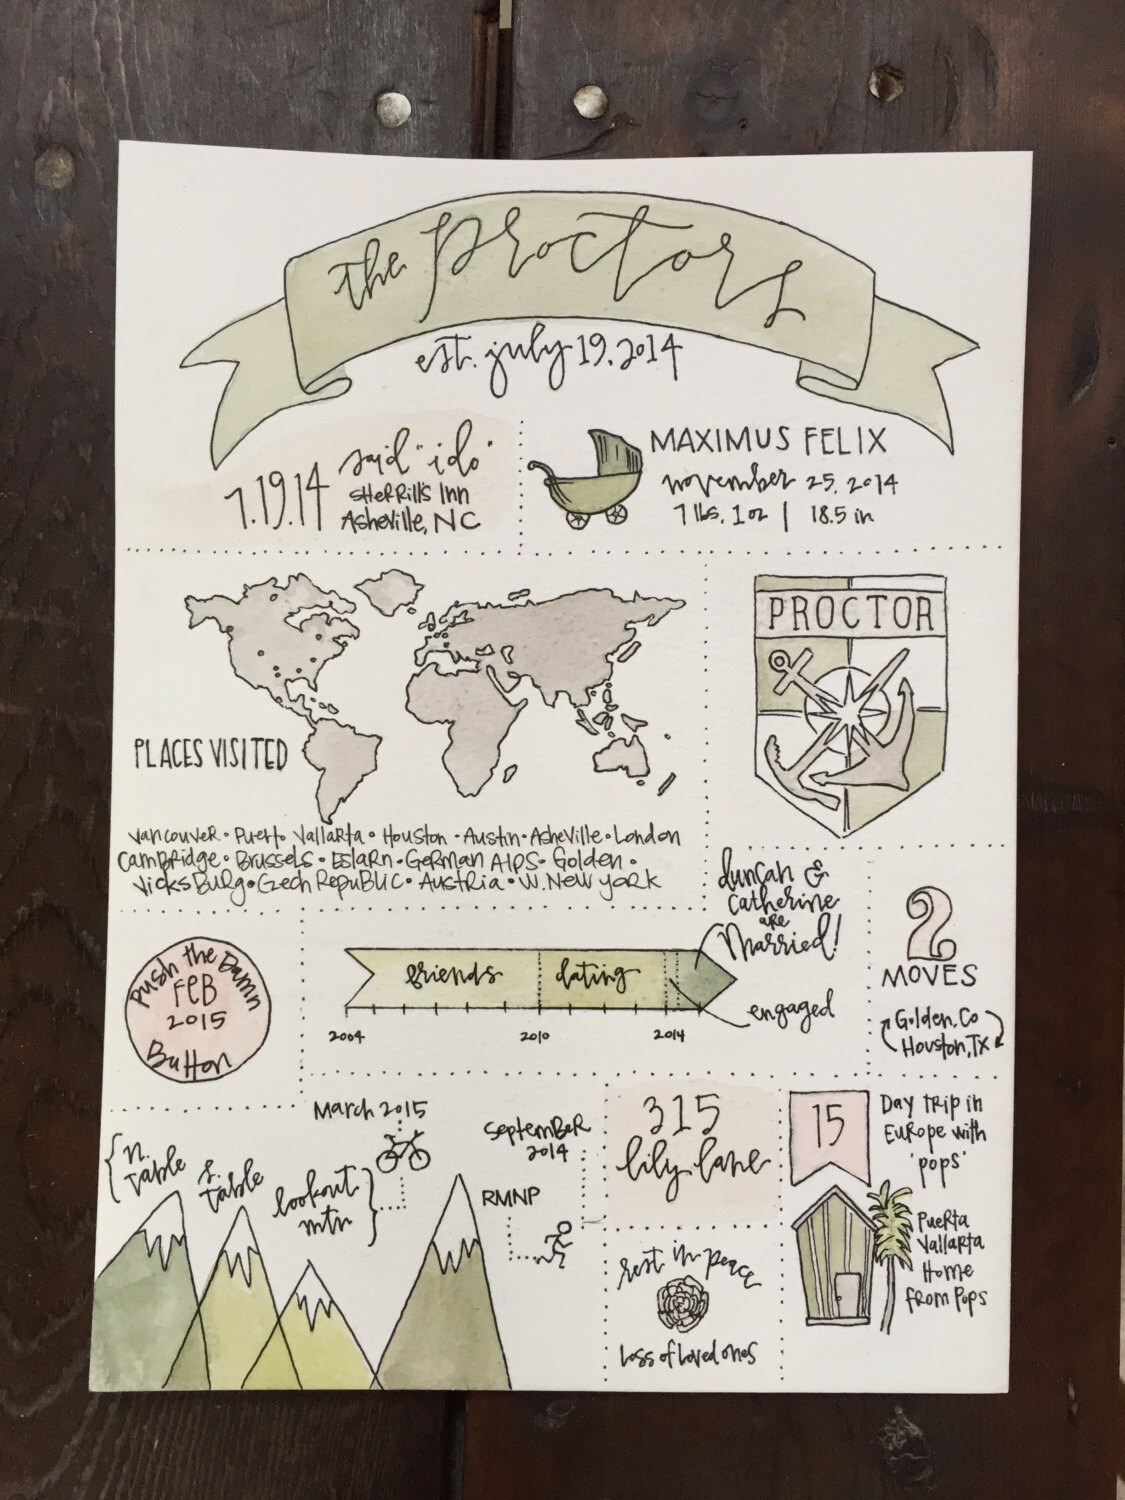 the Proctors
est. july 19, 2014
7.19.14
said "i do"
Sherrill's Inn
Asheville, NC
MAXIMUS FELIX
november 25, 2014
7 lbs, 1 oz | 18.5 in
PLACES VISITED
Vancouver • Puerto Vallarta • Houston • Austin • Asheville • London
Cambridge • Brussels • Eslarn • German Alps • Golden •
Vicksburg • Czech Republic • Austria • W. New York
PROCTOR
Push the Damn
FEB
2015
Button
friends
dating
duncan &
Catherine
are
Married!
engaged
2004
2010
2014
2
MOVES
Golden, Co
Houston, TX
n.
table
s.
table
lookout
mtn
March 2015
September
2014
RMNP
315
lily lane
rest in peace
Loss of loved ones
15
Day trip in
Europe with
'pops'
Puerta
Vallarta
Home
from Pops